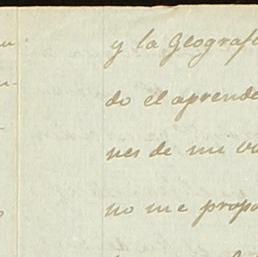 y la Geograf
do el aprende
nes de mi
no me propo